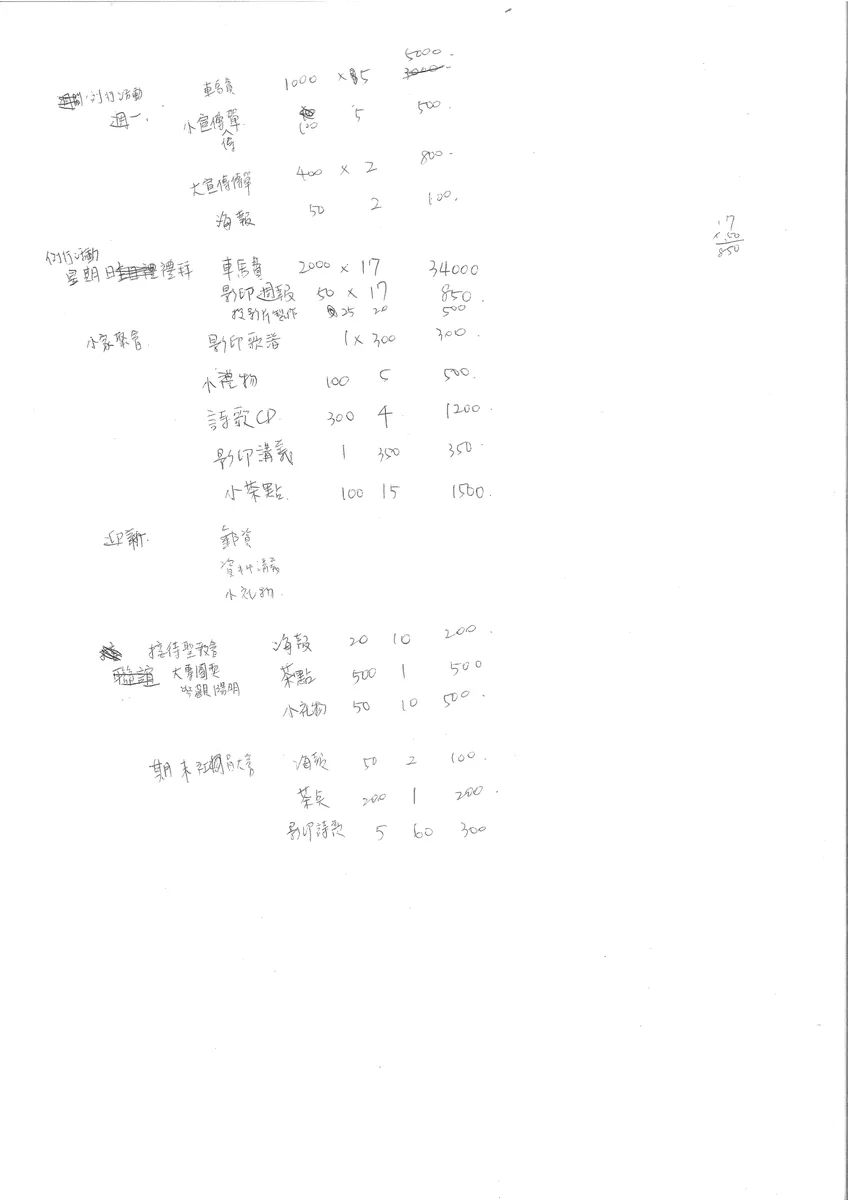 5000.
例行活動 車馬費 1000 × 5 3000.
週一. 小宣傳單 100 5 500.
傳
大宣傳單 400 × 2 800.
海報 50 2 100.
例行活動
星期日 禮拜 車馬費 2000 × 17 34000
影印週報 50 × 17 850.
投影片製作 25 20 500
17
× 50
850
小家聚會. 影印歌譜 1 × 300 300.
小禮物 100 5 500.
詩歌CD. 300 4 1200.
影印講義 1 350 350.
小茶點. 100 15 1500.
迎新. 郵資
資料講義
小礼物.
接待聖歌會 海報 20 10 200.
聯誼 大專團契 茶點 500 1 500
陽明 小礼物 50 10 500.
期末社員大會 海報 50 2 100.
茶点 200 1 200.
影印詩歌 5 60 300